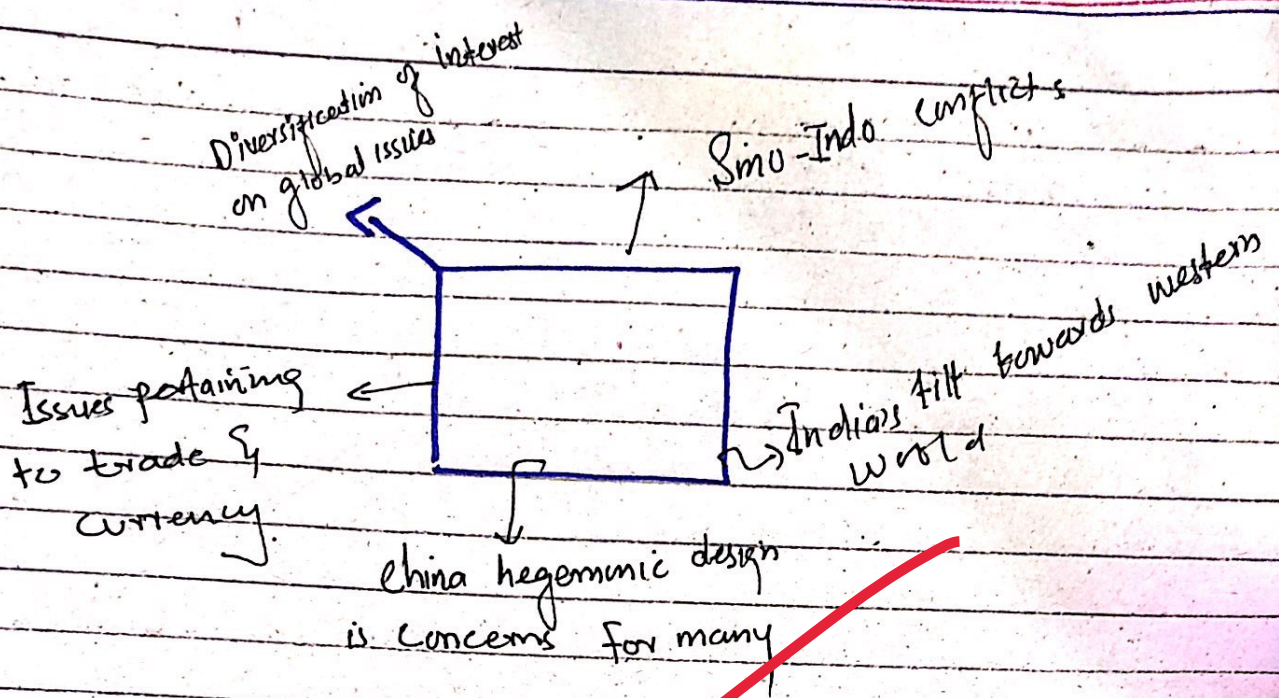 Diversification of interest
on global issues
Sino-Indo conflicts
Issues pertaining
to trade &
currency.
India's tilt towards western
world
China hegemonic design
is concerns for many